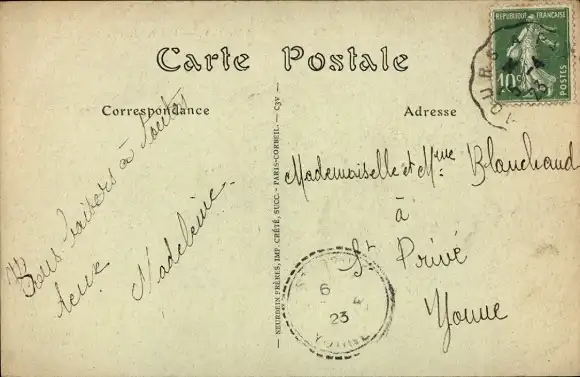 Carte Postale
Correspondance
Bons baisers à toutes
deux
Madeleine
NEURDEIN FRÈRES, IMP. CRÉTÉ, SUCC. - PARIS-CORBEIL. - C3V -
Adresse
Mademoiselle et Mme Blanchand
à
St Privé
Yonne
REPUBLIQUE FRANÇAISE
10c
POSTES
TOURS
4
23
6
4
23
YONNE